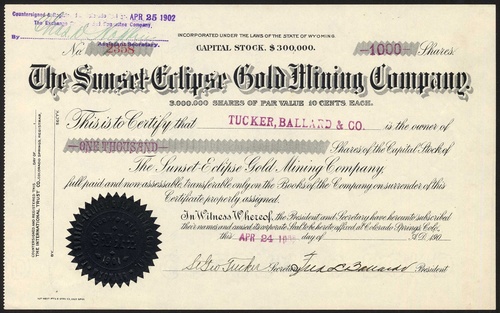 Countersigned & Registered APR 25 1902
The Exchange Company,
By
Assistant Secretary.
INCORPORATED UNDER THE LAWS OF THE STATE OF WYOMING.
CAPITAL STOCK. $300,000.
No 2358
1000 Shares
The Sunset-Eclipse Gold Mining Company.
3,000,000 SHARES OF PAR VALUE 10 CENTS EACH.
This is to Certify that TUCKER, BALLARD & CO. is the owner of
ONE THOUSAND Shares of the Capital Stock of
The Sunset-Eclipse Gold Mining Company,
full paid and non assessable, transferable only on the Books of the Company on surrender of this
Certificate properly assigned.
In Witness Whereof, the President and Secretary have hereunto subscribed
their names and caused its corporate Seal to be hereto affixed at Colorado Springs, Colo.
this APR 24 day of A.D. 190
St Geo Tucker Secretary Fred L Ballard President
COUNTERSIGNED AND REGISTERED THIS DAY OF
THE INTERNATIONAL TRUST CO. COLORADO SPRINGS, REGISTRAR.
SEC'Y.